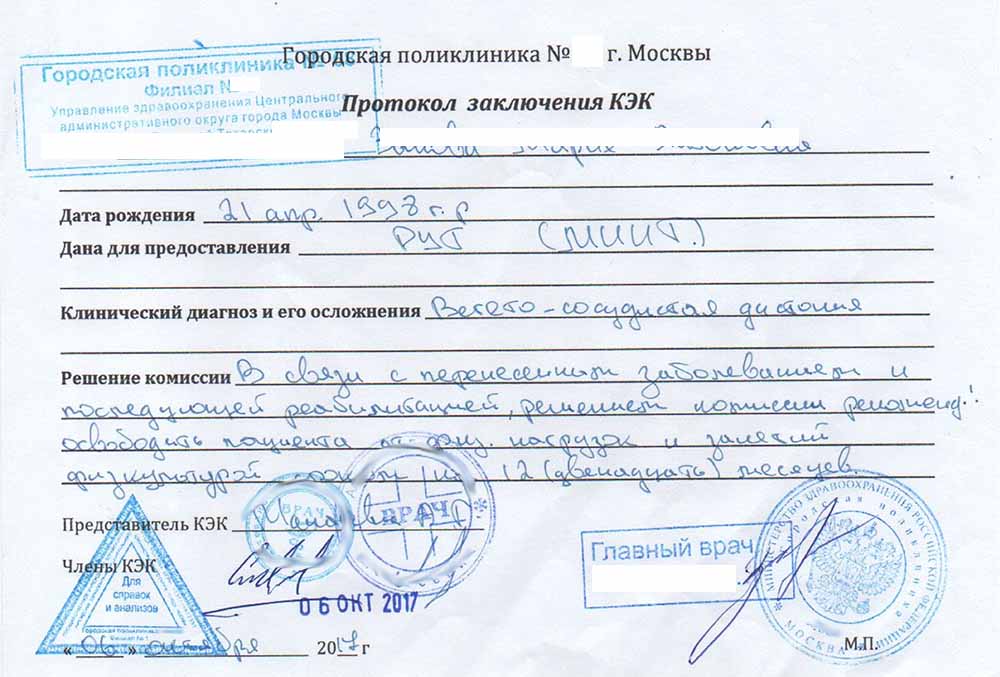 Городская поликлиника № г. Москвы
Городская поликлиника №
Филиал №
Управление здравоохранения Центрального
административного округа города Москвы
Протокол заключения КЭК
Дата рождения 21 апр. 1998 г.р
Дана для предоставления РУТ (МИИТ.)
Клинический диагноз и его осложнения Вегето-сосудистая дистония
Решение комиссии В связи с перенесенным заболеванием и
последующей реабилитацией, решением комиссии рекоменд.:
освободить пациента от физ. нагрузок и занятий
физкультурой на 12 (двенадцать) месяцев.
Представитель КЭК
ВРАЧ
ВРАЧ
Члены КЭК
Для
справок
и анализов
Городская поликлиника
Филиал № 1
06 ОКТ 2017
Главный врач
МИНИСТЕРСТВО ЗДРАВООХРАНЕНИЯ РОССИЙСКОЙ ФЕДЕРАЦИИ
Городская поликлиника
МОСКВА
« 06 » октября 2017 г
М.П.